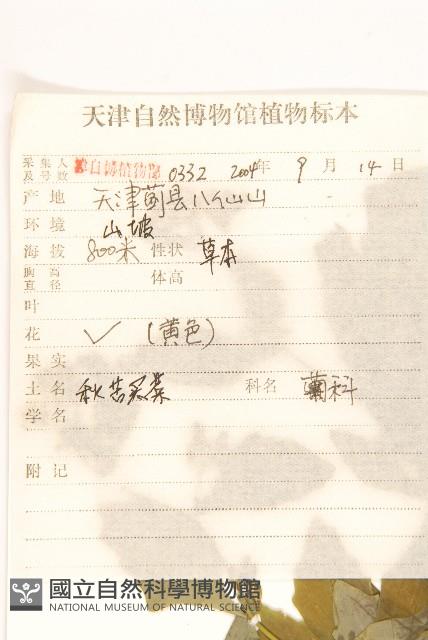 天津自然博物馆植物标本
采集人及号数 自博植物部 0332 2004年 9月 14日
产地 天津蓟县八仙山
环境 山坡
海拔 800米 性状 草本
胸高直径 体高
叶
花 ✓ (黄色)
果实
土名 秋苦荬菜 科名 菊科
学名
附记
國立自然科學博物館
NATIONAL MUSEUM OF NATURAL SCIENCE